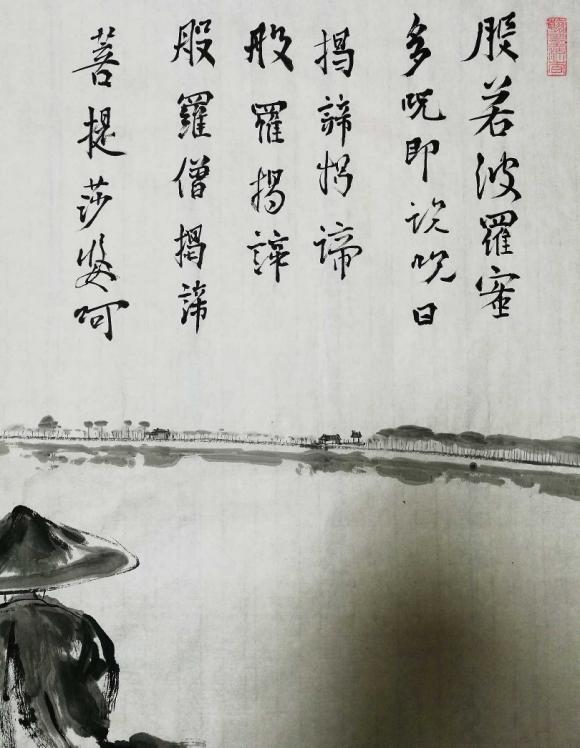 般若波罗蜜
多呪即说呪曰
揭諦揭諦
般羅揭諦
般羅僧揭諦
菩提莎婆呵